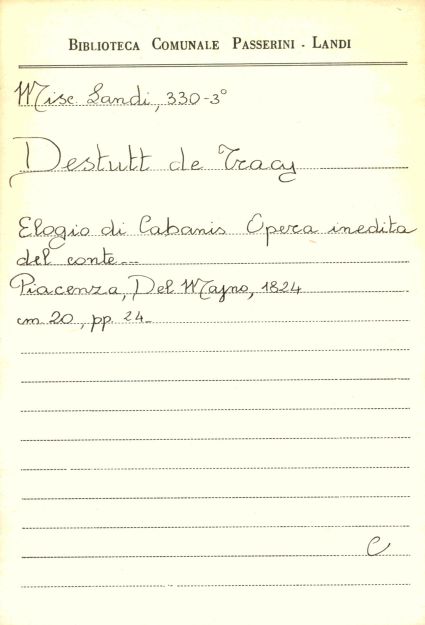 BIBLIOTECA COMUNALE PASSERINI - LANDI
Misc Landi, 330-3°
Destutt de Tracy
Elogio di Cabanis Opera inedita
del conte...
Piacenza, Del Majno, 1824
cm 20, pp. 24.
C